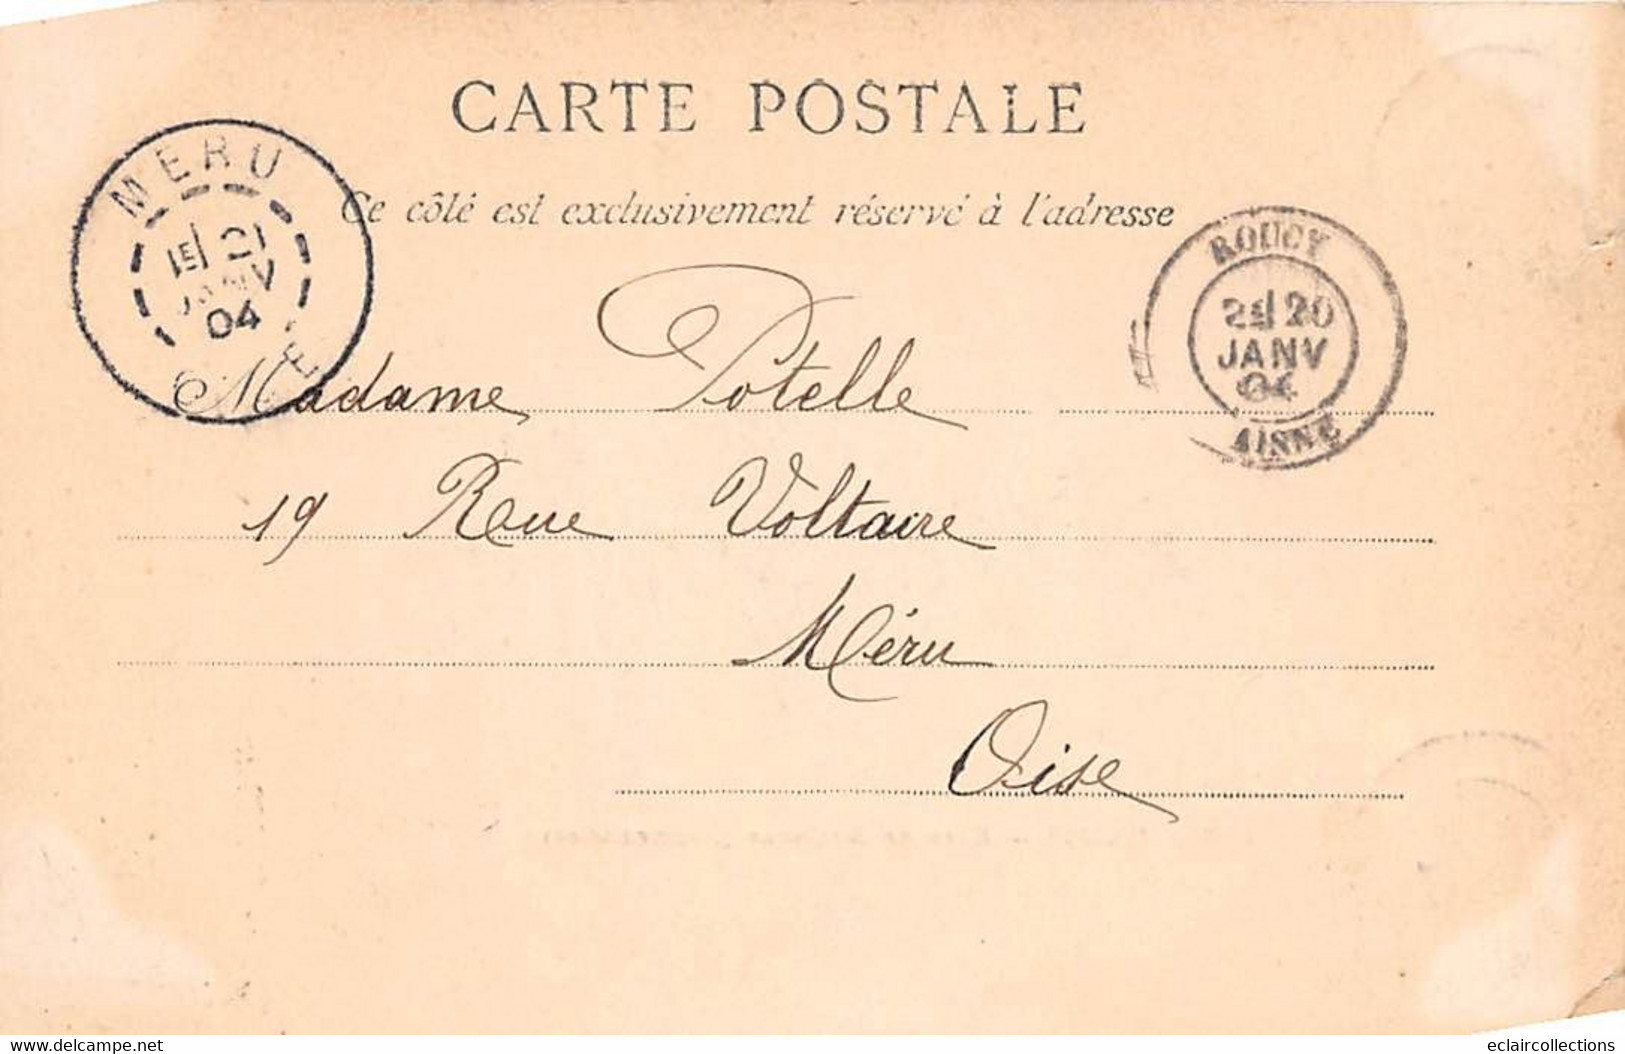 CARTE POSTALE
Ce côté est exclusivement réservé à l'adresse
MERU
1E 21
JANV
04
E
ROUCY
2E 20
JANV
04
AISNE
Madame Potelle
19 Rue Voltaire
Méru
Oise
https://www.delcampe.net
eclaircollections